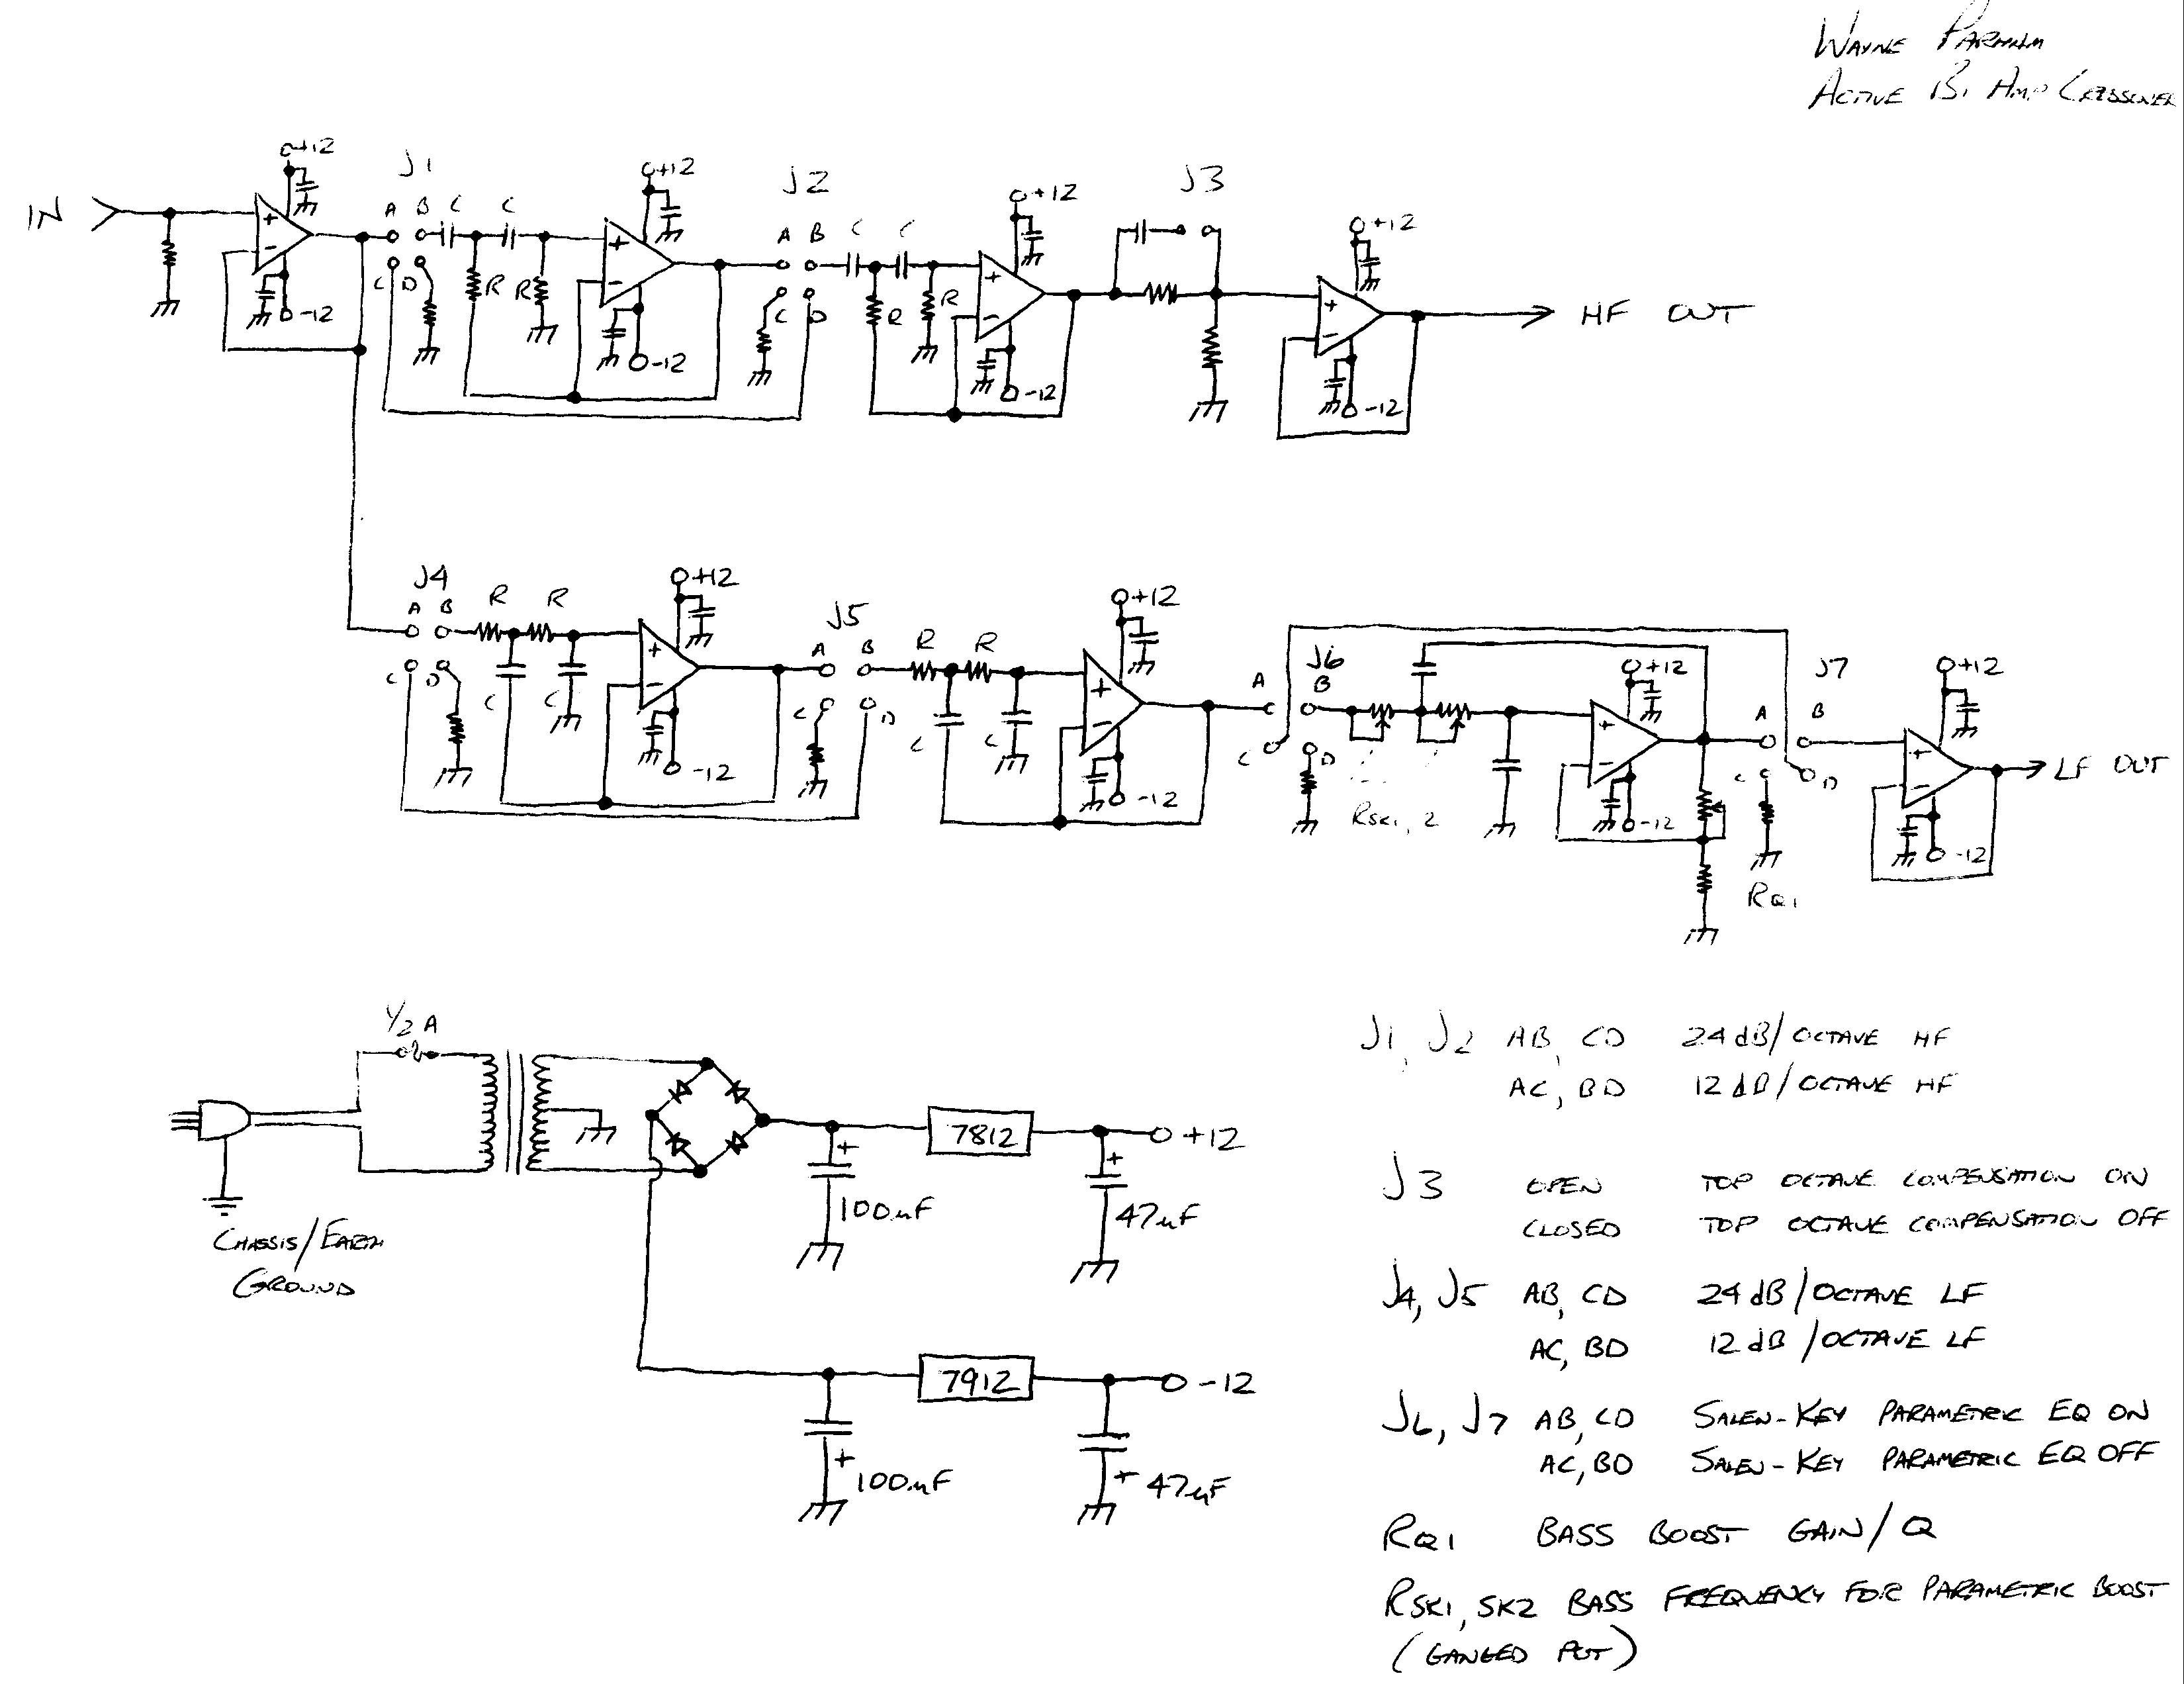 WAYNE PARHAM
ACTIVE BI AMP CROSSOVER
IN
+12
J1
A B C C
C D
R R
-12
+12
-12
J2
A B C C
C D
R R
+12
-12
J3
+12
-12
HF OUT
J4
A B R R
C D
C C
+12
-12
J5
A B R R
C D
C C
+12
-12
J6
A B
C D
RSK1, 2
+12
-12
J7
A B
C D
RQ1
+12
-12
LF OUT
1/2 A
CHASSIS/EARTH
GROUND
7812
+12
100uF
47uF
7912
-12
100uF
47uF
J1, J2 AB, CD 24 dB/OCTAVE HF
AC, BD 12 dB/OCTAVE HF
J3 OPEN TOP OCTAVE COMPENSATION ON
CLOSED TOP OCTAVE COMPENSATION OFF
J4, J5 AB, CD 24 dB/OCTAVE LF
AC, BD 12 dB/OCTAVE LF
J6, J7 AB, CD SALEN-KEY PARAMETRIC EQ ON
AC, BD SALEN-KEY PARAMETRIC EQ OFF
RQ1 BASS BOOST GAIN/Q
RSK1, SK2 BASS FREQUENCY FOR PARAMETRIC BOOST
(GANGED POT)